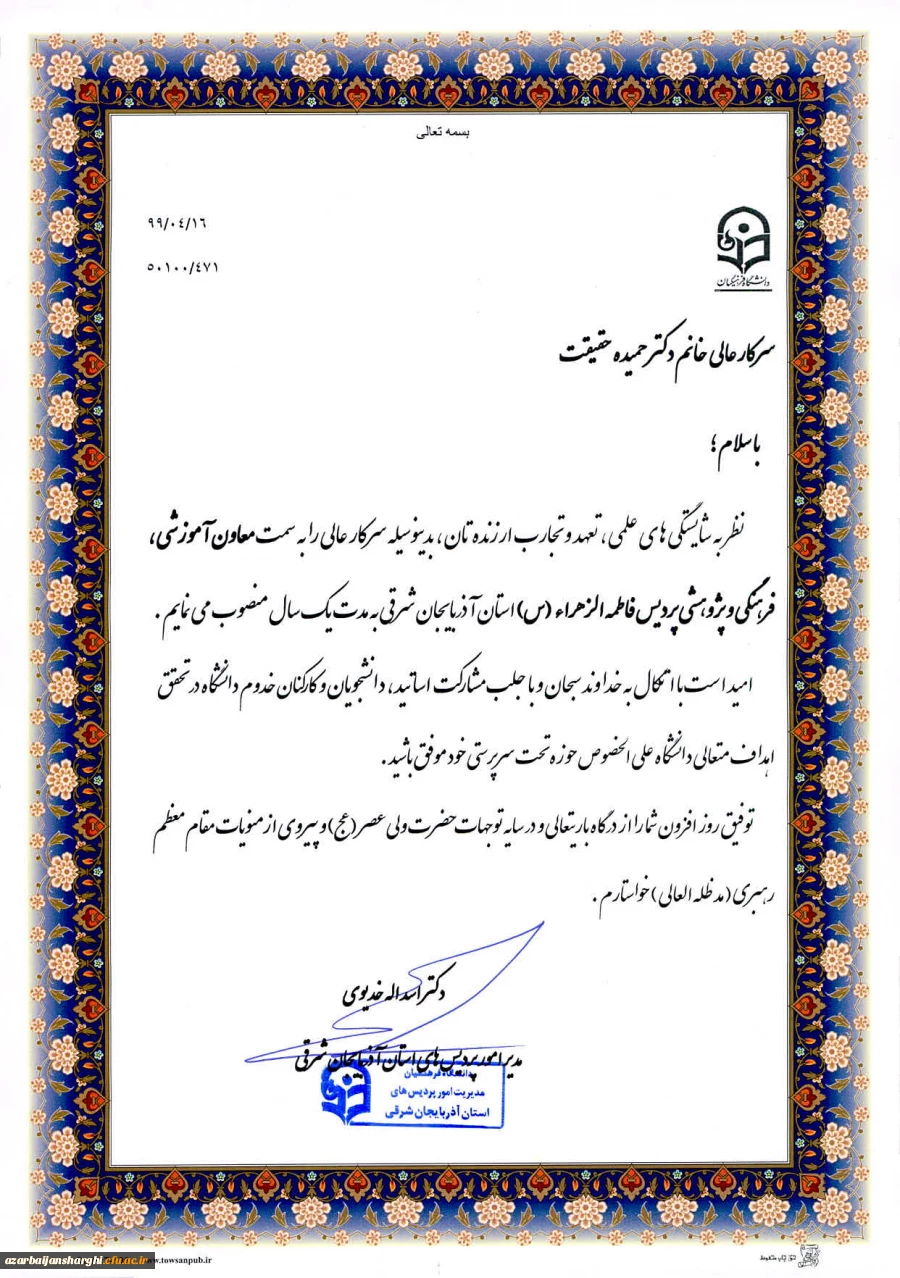 بسمه تعالی
۹۹/۰٤/۱٦
۵۰۱۰۰/٤۷۱
دانشگاه فرهنگیان
سرکار عالی خانم دکتر حمیده حقیقت
با سلام ؛
نظر به شایستگی های علمی ، تعهد و تجارب ارزنده تان ، بدینوسیله سرکار عالی را به سمت معاون آموزشی ،
فرهنگی و پژوهشی پردیس فاطمه الزهراء (س) استان آذربایجان شرقی به مدت یک سال منصوب می نمایم .
امید است با اتکال به خداوند سبحان و با جلب مشارکت اساتید ، دانشجویان و کارکنان خدوم دانشگاه در تحقق
اهداف متعالی دانشگاه علی الخصوص حوزه تحت سرپرستی خود موفق باشید .
توفیق روز افزون شما را از درگاه باریتعالی و در سایه توجهات حضرت ولی عصر (عج) و پیروی از منویات مقام معظم
رهبری (مد ظله العالی) خواستارم .
دکتر اسداله خدیوی
مدیر امور پردیس های استان آذربایجان شرقی
دانشگاه فرهنگیان
مدیریت امور پردیس های
استان آذربایجان شرقی
azarbaijansharghi.cfu.ac.ir
www.towsanpub.ir